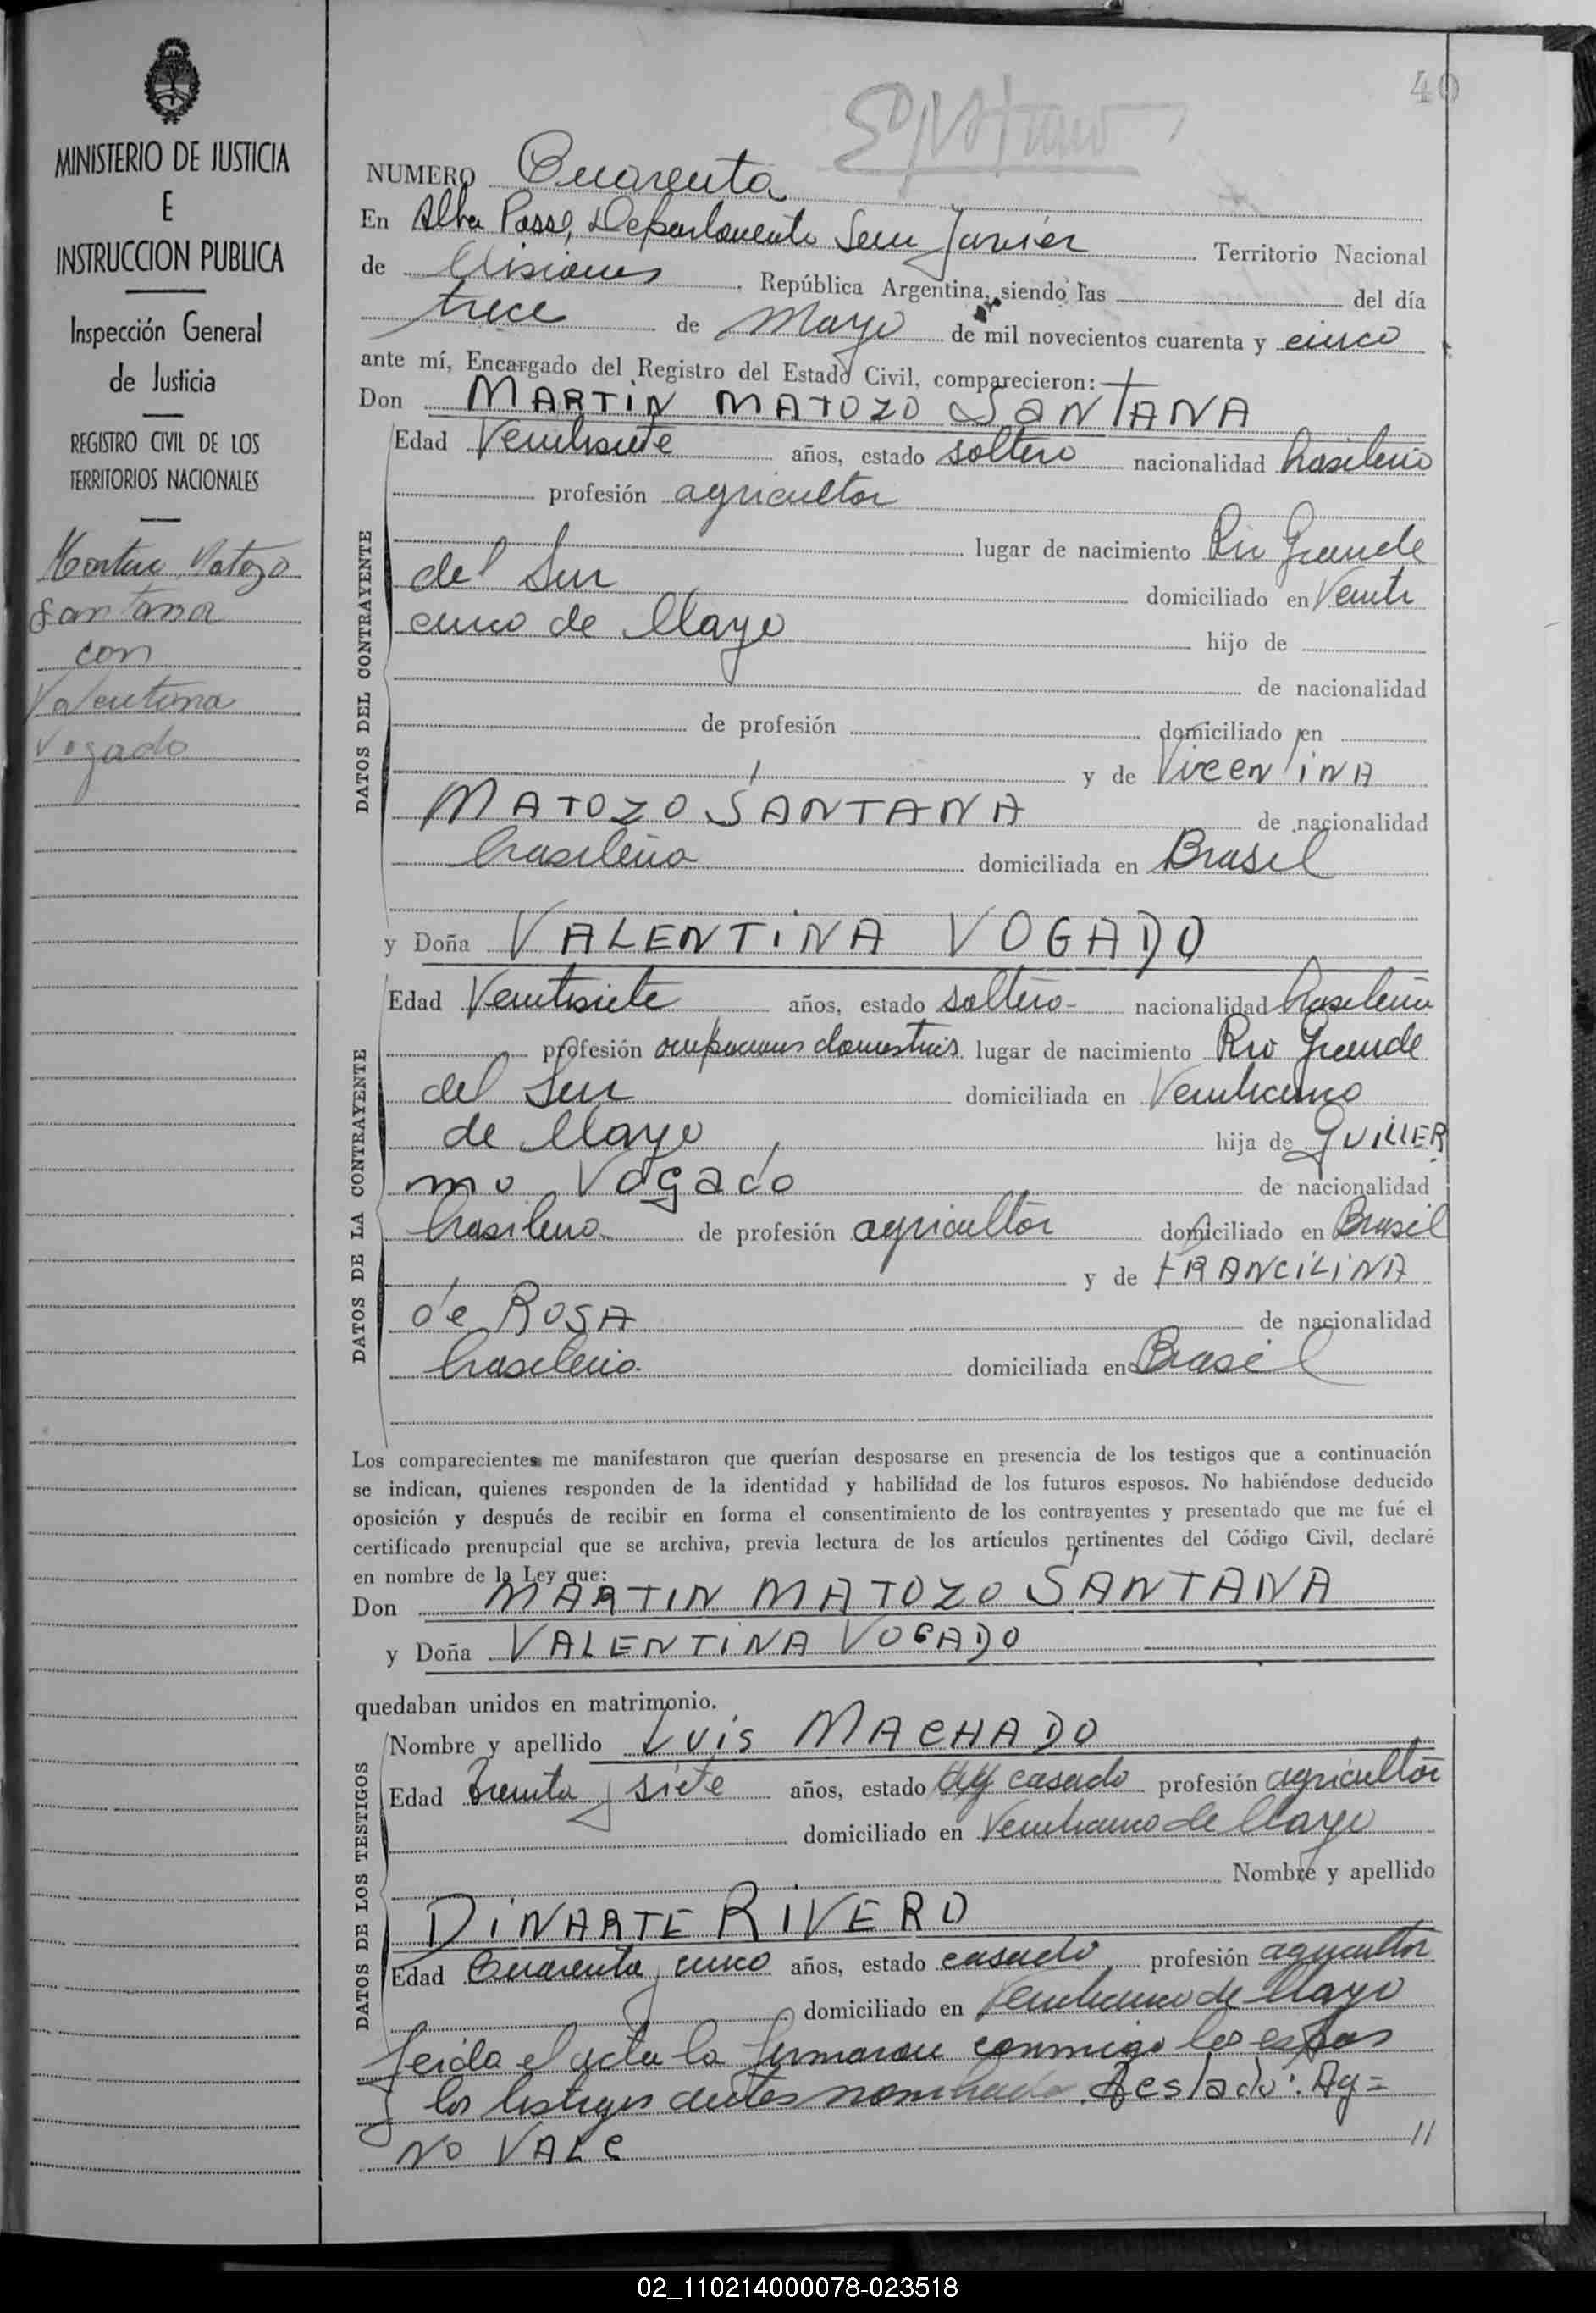 40
MINISTERIO DE JUSTICIA
E
INSTRUCCION PUBLICA
Inspección General
de Justicia
REGISTRO CIVIL DE LOS
TERRITORIOS NACIONALES
Matozo
Santana
con
Valentina
Vogado
NUMERO Cuarenta
En Alba Posse, Departamento San Javier Territorio Nacional
de Misiones, República Argentina, siendo las del día
trece de Mayo de mil novecientos cuarenta y cinco
ante mí, Encargado del Registro del Estado Civil, comparecieron:
Don MARTIN MATOZO SANTANA
DATOS DEL CONTRAYENTE
Edad Veintisiete años, estado soltero nacionalidad brasileño
profesión agricultor
lugar de nacimiento Rio Grande
del Sur domiciliado en Veinti
cinco de Mayo hijo de
de nacionalidad
de profesión domiciliado en
y de VICENTINA
MATOZO SANTANA de nacionalidad
brasileña domiciliada en Brasil
y Doña VALENTINA VOGADO
DATOS DE LA CONTRAYENTE
Edad Veintisiete años, estado soltera nacionalidad brasileña
profesión ocupaciones domesticas lugar de nacimiento Rio Grande
del Sur domiciliada en Veinticinco
de Mayo hija de GUILLER
mo Vogado de nacionalidad
brasileno de profesión agricultor domiciliado en Brasil
y de FRANCILINA
de ROSA de nacionalidad
brasileña domiciliada en Brasil
Los comparecientes me manifestaron que querían desposarse en presencia de los testigos que a continuación
se indican, quienes responden de la identidad y habilidad de los futuros esposos. No habiéndose deducido
oposición y después de recibir en forma el consentimiento de los contrayentes y presentado que me fué el
certificado prenupcial que se archiva, previa lectura de los artículos pertinentes del Código Civil, declaré
en nombre de la Ley que:
Don MARTIN MATOZO SANTANA
y Doña VALENTINA VOGADO
quedaban unidos en matrimonio.
DATOS DE LOS TESTIGOS
Nombre y apellido LUIS MACHADO
Edad Treinta y siete años, estado Ag casado profesión agricultor
domiciliado en Veinticinco de Mayo
Nombre y apellido
DINARTE RIVERO
Edad Cuarenta y cinco años, estado casado profesión agricultor
domiciliado en Veinticinco de Mayo
Leida el acta la firmaron conmigo los esposos
y los testigos antes nombrados. Testado: Ag=
NO VALE //
02_110214000078-023518